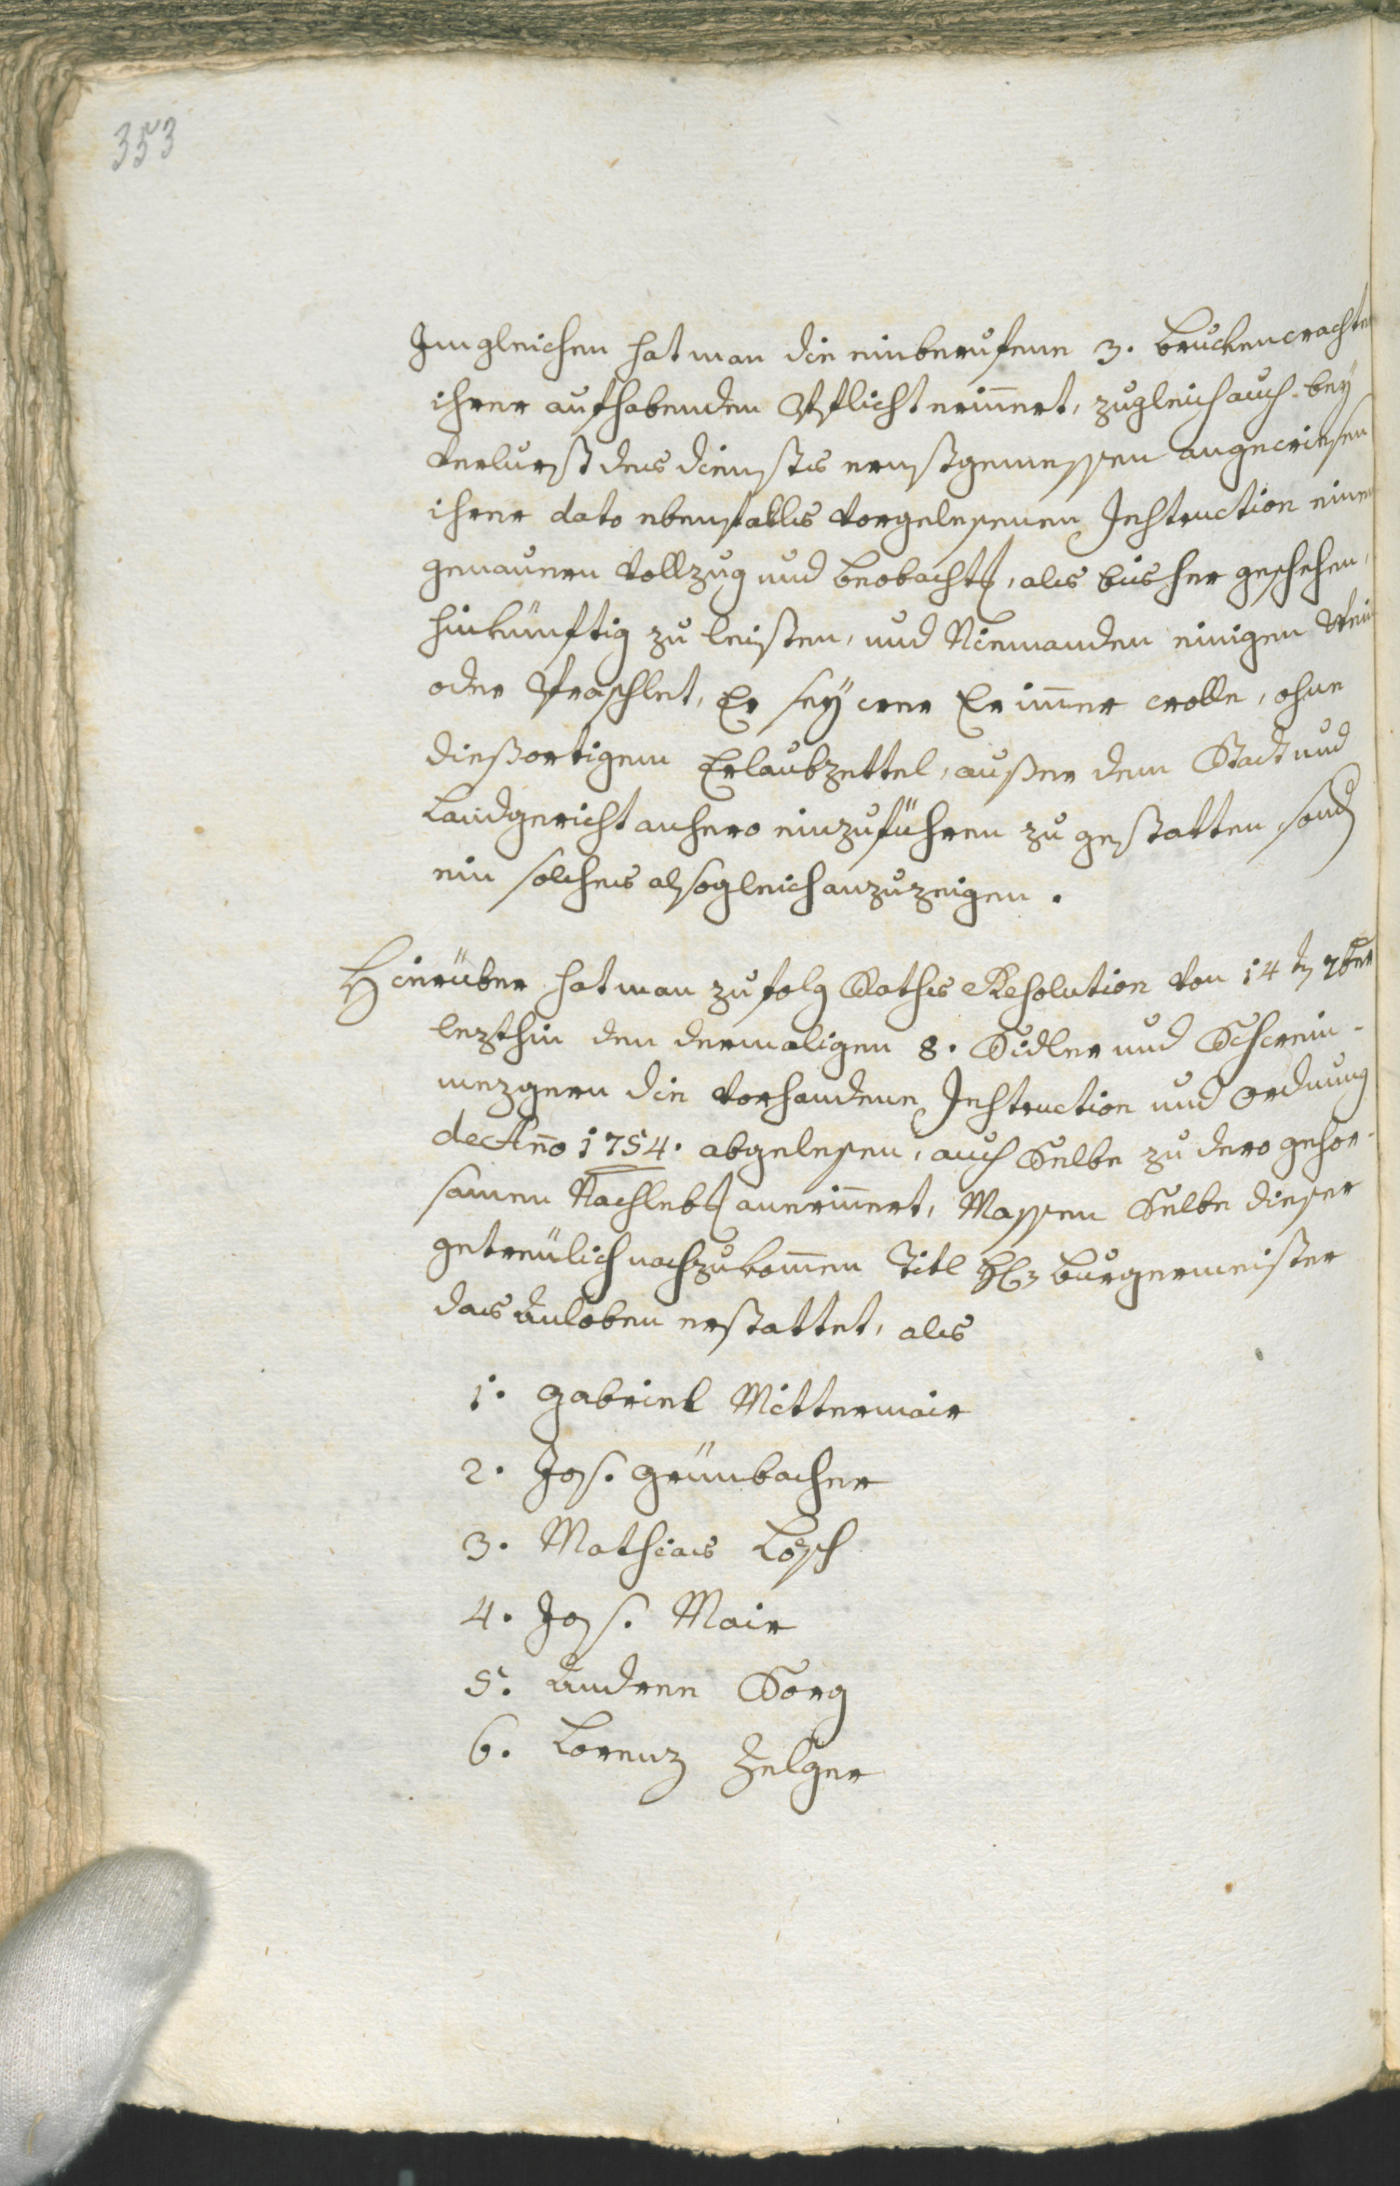 353
Imgleichen hat man die einberufene 3. Bruckenwachter
ihrer aufhabenden Pflicht erinnert, zugleich auch bey
Verlurst des Diensts ernstgemessen angewiesen
ihrer dato ebenfahls vorgelesenen Instruction einen
genauern Vollzug und Beobacht, als bisher geschehen,
hinkünftig zu leisten, und Niemanden einigen Wein
oder Praschlet, Er sey wer Er immer wolle, ohne
dießortigem Erlaubzettel, außer dem Stadt und
Landgericht anhero einzuführen zu gestatten, sond
ein solches alsogleich anzuzeigen.
Hierüber hat man zufolg Raths Resolution von 14 t 7ber
lezthin den dermaligen 8. Sidler und Schwein-
mezgern die vorhandene Instruction und Ordnung
de Año 1754. abgelesen, auch Selbe zu dero gehor-
samen Nachleb anerinnert, Massen Selbe dieser
getreülich nachzukommen Titl H: Burgermeister
das Anloben erstattet, als
1. Gabriel Mittermair
2. Jos. Grünbacher
3. Mathias Lösch
4. Jos. Mair
5. Andree Sorg
6. Lorenz Zelger